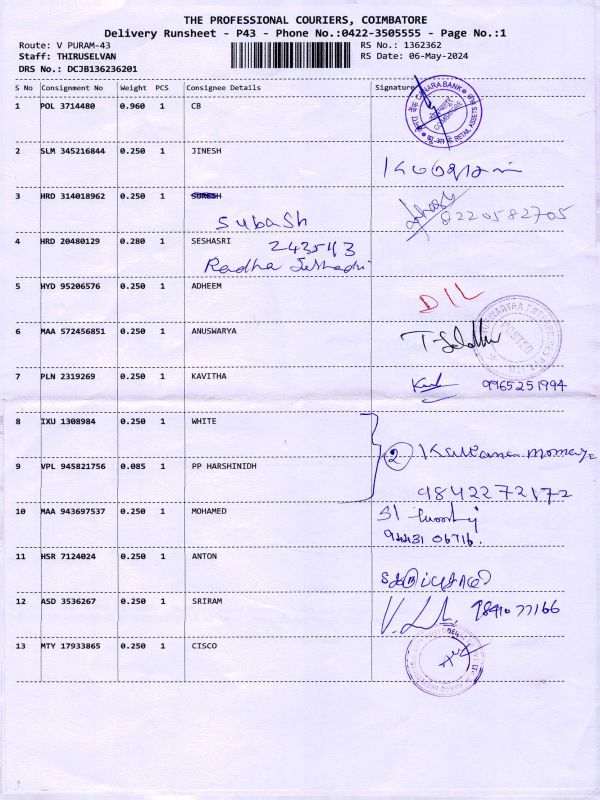 THE PROFESSIONAL COURIERS, COIMBATORE
Delivery Runsheet - P43 - Phone No.:0422-3505555 - Page No.:1
Route: V PURAM-43
RS No.: 1362362
Staff: THIRUSELVAN
RS Date: 06-May-2024
DRS No.: DCJB136236201
S No Consignment No Weight PCS Consignee Details Signature
1 POL 3714480 0.960 1 CB
CANARA BANK
RETAIL ASSETS
COIMBATORE
2 SLM 345216844 0.250 1 JINESH
3 HRD 314018962 0.250 1 SURESH
Subash
8220582705
4 HRD 20480129 0.280 1 SESHASRI
243543
Radha Seshadri
5 HYD 95206576 0.250 1 ADHEEM
DIL
6 MAA 572456851 0.250 1 ANUSWARYA
POSTED
7 PLN 2319269 0.250 1 KAVITHA
9965251994
8 IXU 1308984 0.250 1 WHITE
9 VPL 945821756 0.085 1 PP HARSHINIDH
2
9842272172
10 MAA 943697537 1 MOHAMED
0.250
94431 06716.
11 HSR 7124024 0.250 1 ANTON
12 ASD 3536267 0.250 1 SRIRAM
9841077166
13 MTY 17933865 0.250 1 CISCO